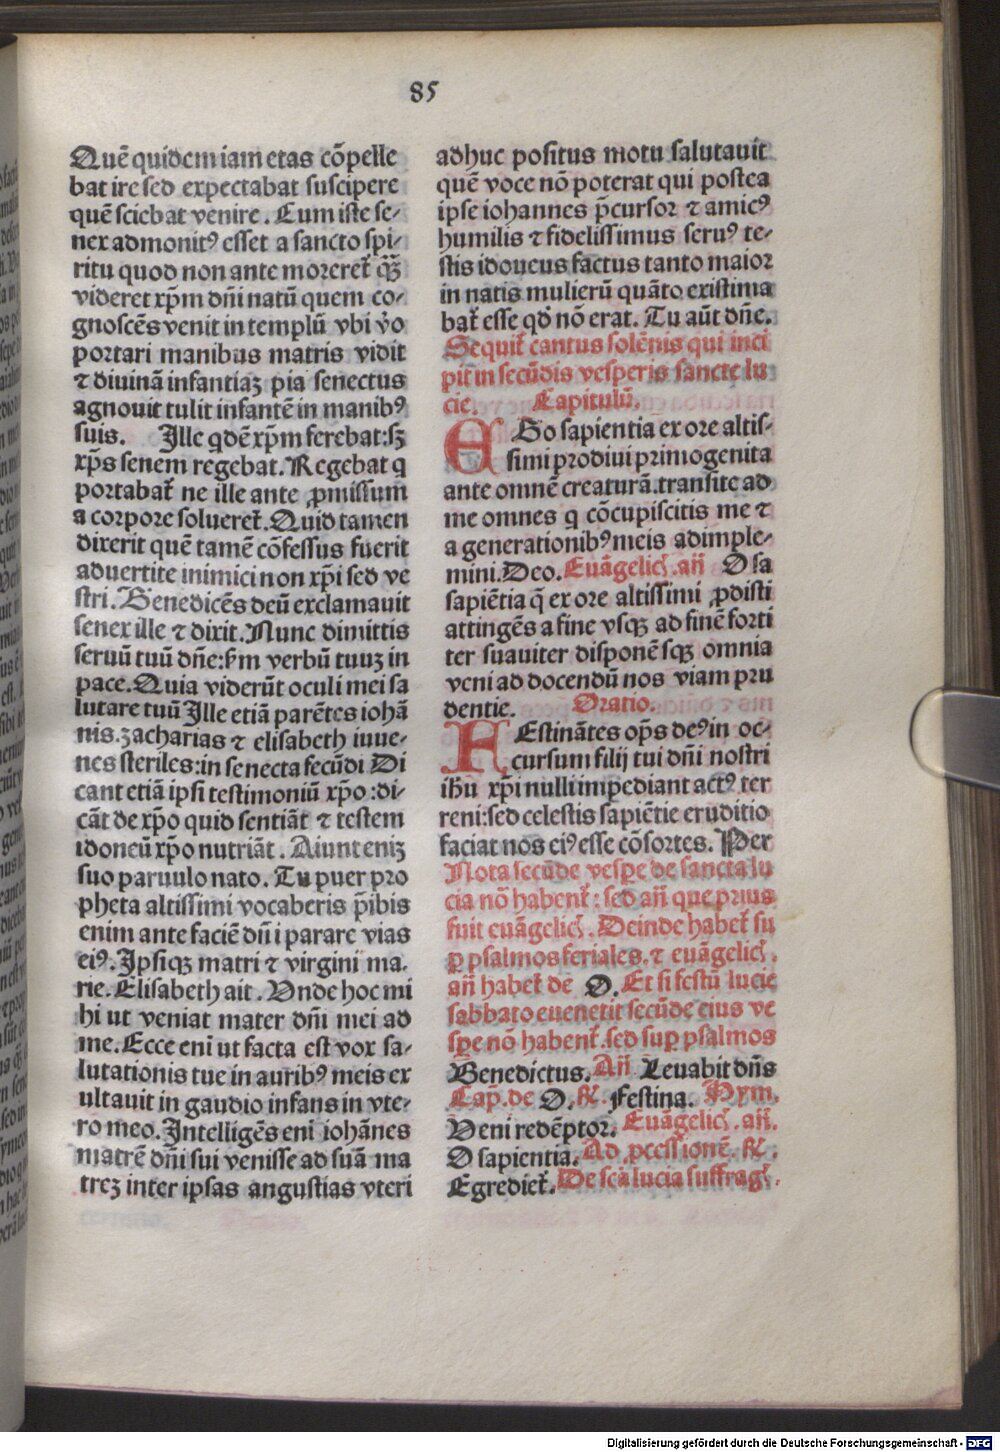 85
Quē quidem iam etas cōpelle
bat ire sed expectabat suscipere
quē sciebat venire. Cum iste se/
nex admonitꝰ esset a sancto spi/
ritu quod non ante moreret̄ qͣ̄ꝫ
videret xp̄m dn̄i natū quem co/
gnoscēs venit in templū vbi v̓o
portari manibus matris vidit
⁊ diuinā infantiaꝫ pia senectus
agnouit tulit infantē in manibꝰ
suis. Ille qd̄ē xp̄m ferebat:sꝫ
xp̄s senem regebat. Regebat q
portabat̄ ne ille ante ꝓmissum
a corpore solueret̄. Quid tamen
dixerit quē tamē cōfessus fuerit
aduertite inimici non xp̄i sed ve
stri. Benedicēs deū exclamauit
senex ille ⁊ dixit. Nunc dimittis
seruū tuū dn̄e:ẜm verbū tuuꝫ in
pace. Quia viderūt oculi mei sa
lutare tuū Ille etiā parētes iohā
nis.ꝫacharias ⁊ elisabeth iuue/
nes steriles:in senecta fecūdi Di
cant etiā ipsi testimoniū xp̄o:di/
cāt de xp̄o quid sentiāt ⁊ testem
idoneū xp̄o nutriāt. Aiunt eniꝫ
suo paruulo nato. Tu puer pro
pheta altissimi vocaberis p̄ibis
enim ante faciē dn̄i parare vias
eiꝰ. Ipsiqꝫ matri ⁊ virgini ma.
rie. Elisabeth ait. Vnde hoc mi
hi ut veniat mater dn̄i mei ad
me. Ecce eni ut facta est vox sa/
lutationis tue in auribꝰ meis ex
ultauit in gaudio infans in vte/
ro meo. Intelligēs eni iohānes
matrē dn̄i sui venisse ad suā ma
treꝫ inter ipsas angustias vteri
adhuc positus motu salutauit
quē voce nō poterat qui postea
ipse iohannes p̄cursor ⁊ amicꝰ
humilis ⁊ fidelissimus seruꝰ te/
stis idoueus factus tanto maior
in natis mulierū quāto existima
bat̄ esse qd̄ nō erat. Tu aūt dn̄e.
Sequit̄ cantus solēnis qui inci
pit in secūdis vesperis sancte lu
cie. Capitulū.
EGo sapientia ex ore altis/
simi prodiui primogenita
ante omnē creaturā.transite ad
me omnes q cōcupiscitis me ⁊
a generationibꝰ meis adimple/
mini. Deo. Euāgelicꝭ.an̄ O sa
sapiētia q̄ ex ore altissimi ꝓdisti
attingēs a fine vsqꝫ ad finē forti
ter suauiter disponēsqꝫ omnia
veni ad docendū nos viam pru
dentie. Oratio.
FEstinātes op̄s deꝰ in oc/
cursum filij tui dn̄i nostri
ih̄u xp̄i nulli imp̄ediant actꝰ ter
reni:sed celestis sapiētie eruditio
faciat nos eiꝰ esse cōsortes. Per
Nota secūde vesꝑe de sancta lu
cia nō habent̄:sed an̄ que prius
fuit euāgelicꝭ. Deinde habet̄ su
ꝑ psalmos feriales.⁊ euāgelicꝭ.
an̄ habet̄ de O. Et si festū lucie
sabbato euenetit secūde eius ve
sꝑe nō habent̄.sed suꝑ psalmos
Benedictus. An̄ Leuabit dn̄s
Cap̄. de O. ꝶ. Festina. Hym.
Veni redēptor. Euāgelicꝭ. an̄.
O sapientia. Ad ꝓcessionē. ꝶ.
Egrediet̄. De scā lucia suffragꝭ.
Digitalisierung gefördert durch die Deutsche Forschungsgemeinschaft - DFG